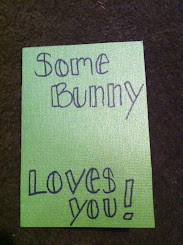 Some
Bunny
Loves
you!